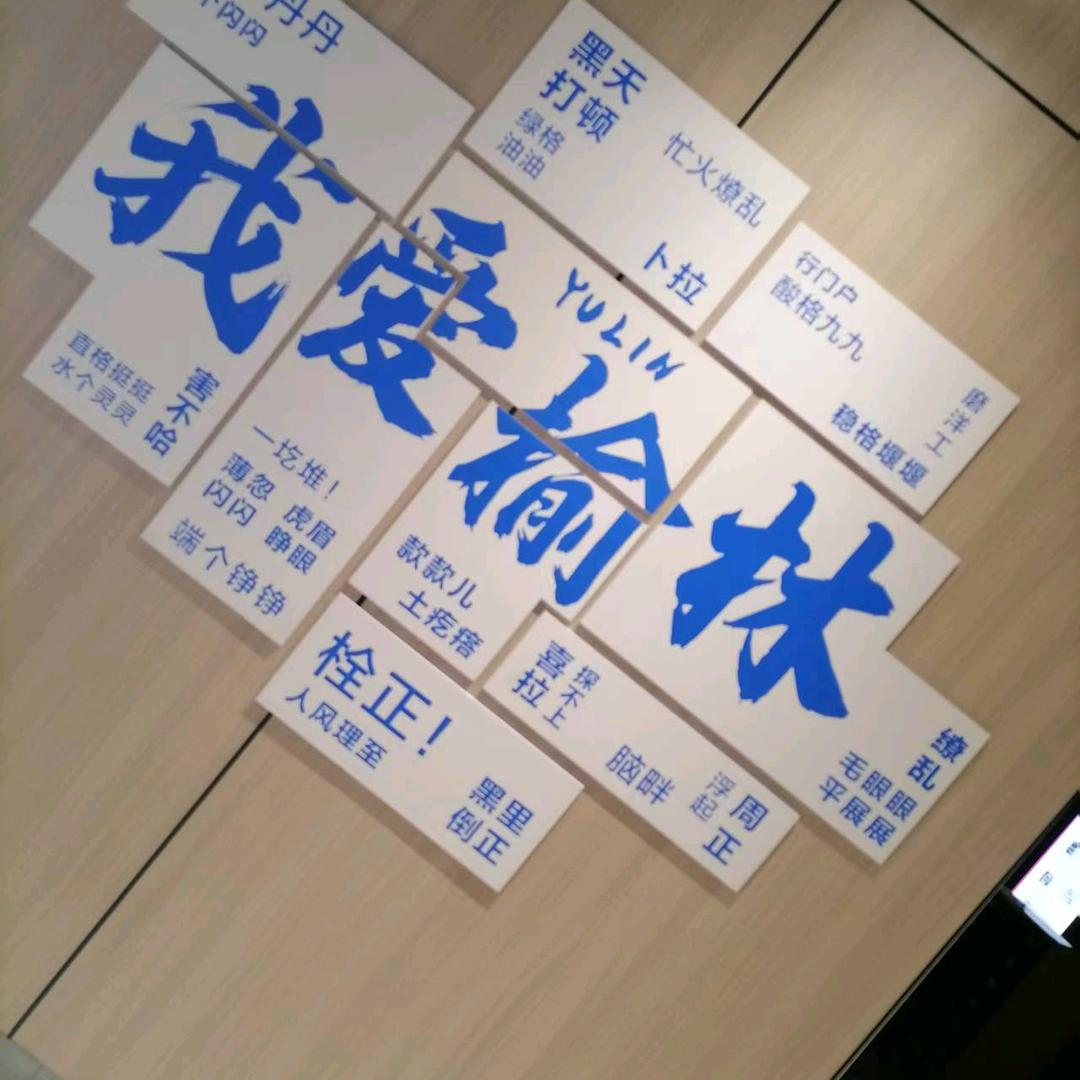 丹丹
闪闪
黑天
打顿
绿格
油油
忙火燎乱
卜拉
行门户
酸格九九
磨洋工
稳格堰堰
我爱榆林
YULIN
直格挺挺
水个灵灵
害不哈
一圪堆！
薄忽
闪闪
虎眉
睁眼
端个铮铮
款款儿
土疙瘩
栓正！
人风理至
黑里
倒正
喜拉
探不上
脑畔
浮起
周正
缭乱
毛眼眼
平展展